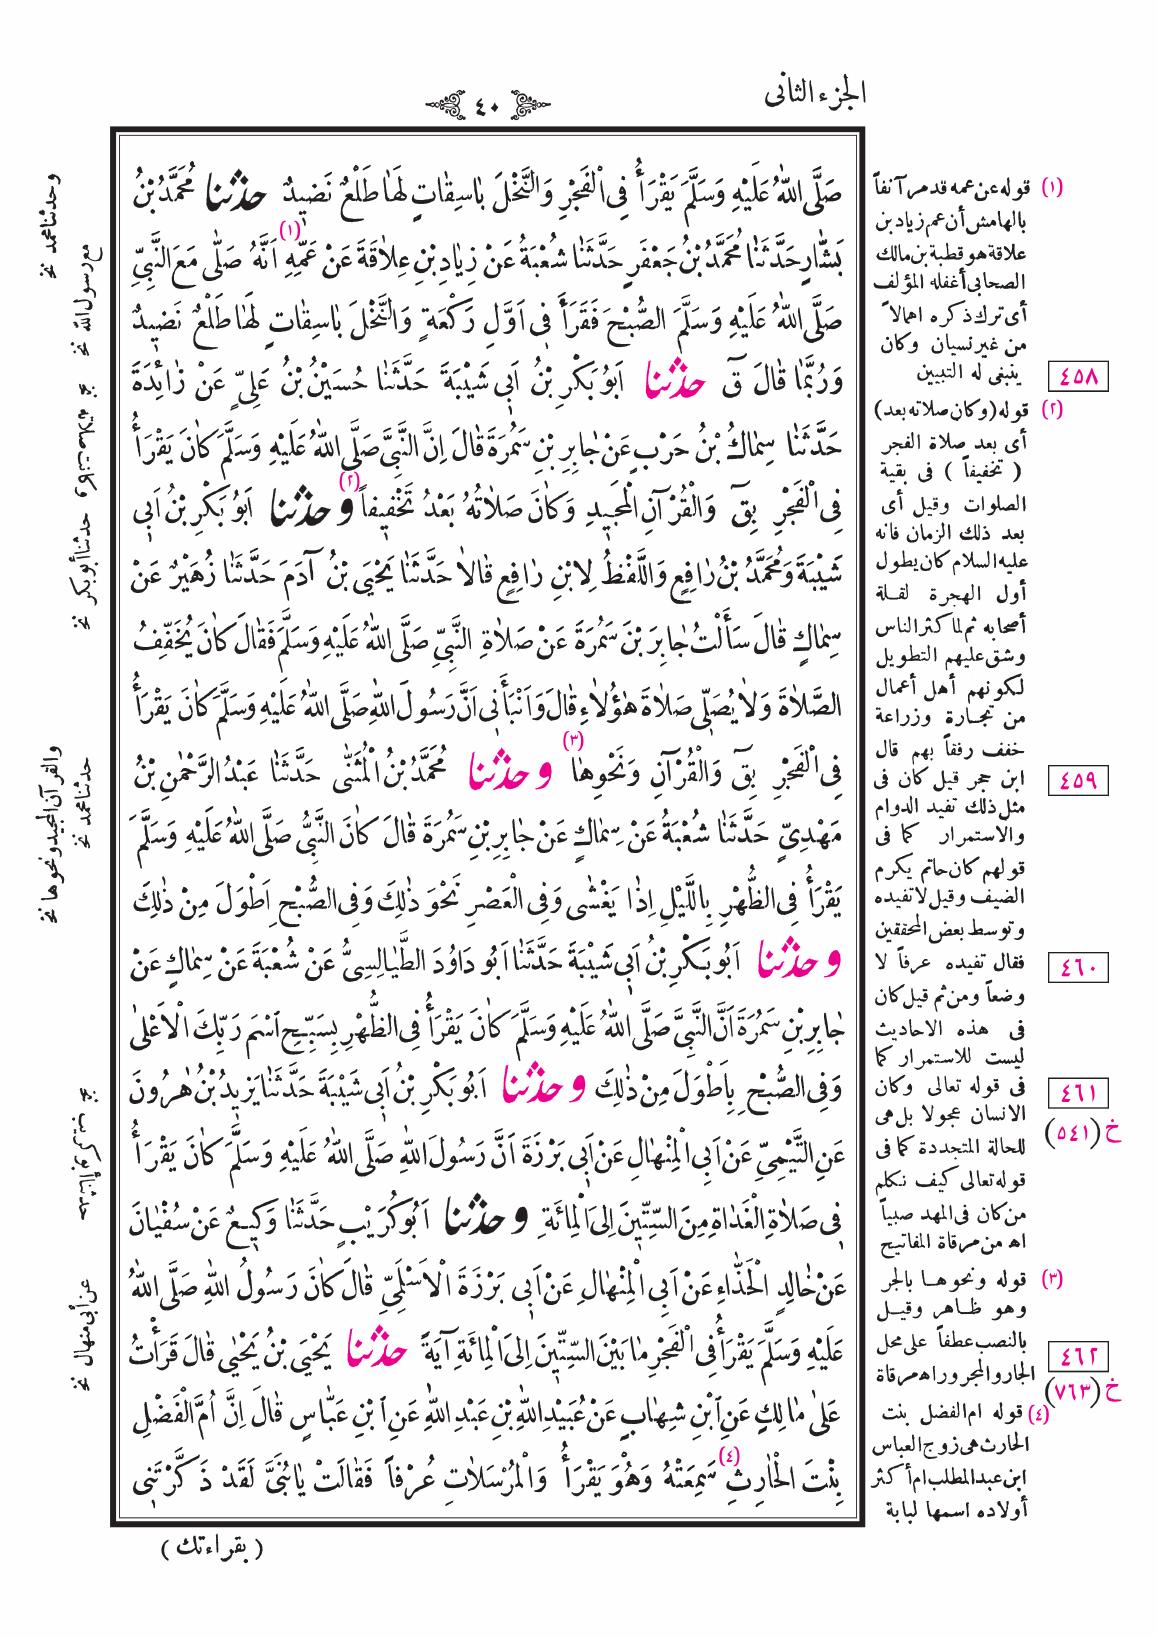 الجزء الثانى
٤٠
صَلَّى اللّٰهُ عَلَيْهِ وَسَلَّمَ يَقْرَأُ فِى الْفَجْرِ وَالنَّخْلَ بَاسِقَاتٍ لَهَا طَلْعٌ نَضِيدٌ حدثنا مُحَمَّدُ بْنُ
بَشَّارٍ حَدَّثَنَا مُحَمَّدُ بْنُ جَعْفَرٍ حَدَّثَنَا شُعْبَةُ عَنْ زِيَادِ بْنِ عِلَاقَةَ عَنْ عَمِّهِ (١) اَنَّهُ صَلَّى مَعَ النَّبِيِّ
صَلَّى اللّٰهُ عَلَيْهِ وَسَلَّمَ الصُّبْحَ فَقَرَأَ فِى اَوَّلِ رَكْعَةٍ وَالنَّخْلَ بَاسِقَاتٍ لَهَا طَلْعٌ نَضِيدٌ
وَرُبَّمَا قَالَ قٓ حدثنا اَبُو بَكْرِ بْنُ اَبِى شَيْبَةَ حَدَّثَنَا حُسَيْنُ بْنُ عَلِيٍّ عَنْ زَائِدَةَ
حَدَّثَنَا سِمَاكُ بْنُ حَرْبٍ عَنْ جَابِرِ بْنِ سَمُرَةَ قَالَ اِنَّ النَّبِيَّ صَلَّى اللّٰهُ عَلَيْهِ وَسَلَّمَ كَانَ يَقْرَأُ
فِى الْفَجْرِ بِقٓ وَالْقُرْآنِ الْمَجِيدِ وَكَانَ صَلَاتُهُ بَعْدُ تَخْفِيفاً (٢) و حدثنا اَبُو بَكْرِ بْنُ اَبِى
شَيْبَةَ وَمُحَمَّدُ بْنُ رَافِعٍ وَاللَّفْظُ لِابْنِ رَافِعٍ قَالَا حَدَّثَنَا يَحْيَى بْنُ آدَمَ حَدَّثَنَا زُهَيْرٌ عَنْ
سِمَاكٍ قَالَ سَأَلْتُ جَابِرَ بْنَ سَمُرَةَ عَنْ صَلَاةِ النَّبِيِّ صَلَّى اللّٰهُ عَلَيْهِ وَسَلَّمَ فَقَالَ كَانَ يُخَفِّفُ
الصَّلَاةَ وَلَا يُصَلِّى صَلَاةَ هٰؤُلَاءِ قَالَ وَاَنْبَأَنِى اَنَّ رَسُولَ اللّٰهِ صَلَّى اللّٰهُ عَلَيْهِ وَسَلَّمَ كَانَ يَقْرَأُ
فِى الْفَجْرِ بِقٓ وَالْقُرْآنِ وَنَحْوِهَا (٣) و حدثنا مُحَمَّدُ بْنُ الْمُثَنَّى حَدَّثَنَا عَبْدُ الرَّحْمٰنِ بْنُ
مَهْدِيٍّ حَدَّثَنَا شُعْبَةُ عَنْ سِمَاكٍ عَنْ جَابِرِ بْنِ سَمُرَةَ قَالَ كَانَ النَّبِيُّ صَلَّى اللّٰهُ عَلَيْهِ وَسَلَّمَ
يَقْرَأُ فِى الظُّهْرِ بِاللَّيْلِ اِذَا يَغْشٰى وَفِى الْعَصْرِ نَحْوَ ذٰلِكَ وَفِى الصُّبْحِ اَطْوَلَ مِنْ ذٰلِكَ
و حدثنا اَبُو بَكْرِ بْنُ اَبِى شَيْبَةَ حَدَّثَنَا اَبُو دَاوُدَ الطَّيَالِسِيُّ عَنْ شُعْبَةَ عَنْ سِمَاكٍ عَنْ
جَابِرِ بْنِ سَمُرَةَ اَنَّ النَّبِيَّ صَلَّى اللّٰهُ عَلَيْهِ وَسَلَّمَ كَانَ يَقْرَأُ فِى الظُّهْرِ بِسَبِّحِ اسْمَ رَبِّكَ الْاَعْلٰى
وَفِى الصُّبْحِ بِاَطْوَلَ مِنْ ذٰلِكَ و حدثنا اَبُو بَكْرِ بْنُ اَبِى شَيْبَةَ حَدَّثَنَا يَزِيدُ بْنُ هٰرُونَ
عَنِ التَّيْمِيِّ عَنْ اَبِى الْمِنْهَالِ عَنْ اَبِى بَرْزَةَ اَنَّ رَسُولَ اللّٰهِ صَلَّى اللّٰهُ عَلَيْهِ وَسَلَّمَ كَانَ يَقْرَأُ
فِى صَلَاةِ الْغَدَاةِ مِنَ السِّتِّينَ اِلَى الْمِائَةِ و حدثنا اَبُو كُرَيْبٍ حَدَّثَنَا وَكِيعٌ عَنْ سُفْيَانَ
عَنْ خَالِدٍ الْحَذَّاءِ عَنْ اَبِى الْمِنْهَالِ عَنْ اَبِى بَرْزَةَ الْاَسْلَمِيِّ قَالَ كَانَ رَسُولُ اللّٰهِ صَلَّى اللّٰهُ
عَلَيْهِ وَسَلَّمَ يَقْرَأُ فِى الْفَجْرِ مَا بَيْنَ السِّتِّينَ اِلَى الْمِائَةِ آيَةً حدثنا يَحْيَى بْنُ يَحْيٰى قَالَ قَرَأْتُ
عَلَى مَالِكٍ عَنِ ابْنِ شِهَابٍ عَنْ عُبَيْدِ اللّٰهِ بْنِ عَبْدِ اللّٰهِ عَنِ ابْنِ عَبَّاسٍ قَالَ اِنَّ اُمَّ الْفَضْلِ
بِنْتَ الْحَارِثِ (٤) سَمِعَتْهُ وَهُوَ يَقْرَأُ وَالْمُرْسَلَاتِ عُرْفاً فَقَالَتْ يَا بُنَىَّ لَقَدْ ذَكَّرْتَنِى
( بقراءتك )
(١) قوله عن عمه قد مر آنفاً
بالهامش أن عم زياد بن
علاقة هو قطبة بن مالك
الصحابى أغفله المؤلف
أى ترك ذكره اهمالاً
من غير نسيان وكان
ينبغى له التبيين
(٢) قوله (وكان صلاته بعد)
أى بعد صلاة الفجر
( تخفيفاً ) فى بقية
الصلوات وقيل أى
بعد ذلك الزمان فانه
عليه السلام كان يطول
أول الهجرة لقلة
أصحابه ثم لما كثر الناس
وشق عليهم التطويل
لكونهم أهل أعمال
من تجارة وزراعة
خفف رفقاً بهم قال
ابن حجر قيل كان فى
مثل ذلك تفيد الدوام
والاستمرار كما فى
قولهم كان حاتم يكرم
الضيف وقيل لا تفيده
وتوسط بعض المحققين
فقال تفيده عرفاً لا
وضعاً ومن ثم قيل كان
فى هذه الاحاديث
ليست للاستمرار كما
فى قوله تعالى وكان
الانسان عجولا بل هى
للحالة المتجددة كما فى
قوله تعالى كيف نكلم
من كان فى المهد صبياً
اه من مرقاة المفاتيح
(٣) قوله ونحوها بالجر
وهو ظاهر وقيل
بالنصب عطفاً على محل
الجار والمجرور اه مرقاة
(٤) قوله ام الفضل بنت
الحارث هى زوج العباس
ابن عبد المطلب ام أكثر
أولاده اسمها لبابة
٤٥٨
٤٥٩
٤٦٠
٤٦١
خ (٥٤١)
٤٦٢
خ (٧٦٣)
وحدثنا محمد نخ
مع رسول الله نخ
وكانت صلاته نخ
حدثنا أبو بكر نخ
والقرآن المجيد ونحوها نخ
حدثنا محمد نخ
حدثنا أبو كريب نخ
عن أبى منهال نخ